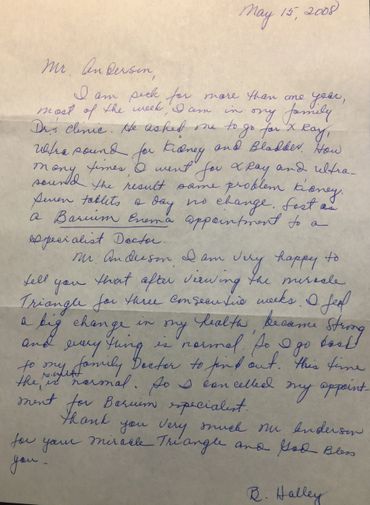 May 15, 2008
Mr. Anderson,
I am sick for more than one year,
most of the week, I am in my family
Drs clinic. He asked me to go for X Ray,
ultra sound for Kidney and Bladder. How
many times I went for XRay and ultra-
sound the result same problem Kidney.
Seven tablets a day no change. Just as
a Barium Enema appointment to a
especialist Doctor.
Mr Anderson, I am very happy to
tell you that after viewing the miracle
Triangle for three consecutive weeks. I feel
a big change in my health, became strong
and everything is normal. So I go back
to my family Doctor to find out. This time
the result is normal. So I cancelled my appoint-
ment for Barium especialist.
Thank you very much Mr Anderson
for your miracle Triangle and God Bless
you.
R. Halley